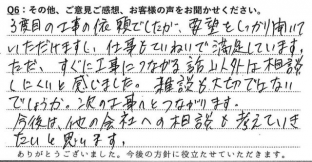 Q6：その他、ご意見ご感想、お客様の声をお聞かせください。
3度目の工事の依頼でしたが、要望をしっかり聞いて
いただけますし、仕事もていねいで満足しています。
ただ、すぐに工事につながる話以外は相談
しにくいと感じました。雑談も大切ではない
でしょうか。次の工事へとつながります。
今後は、他の会社への相談も考えていき
たいと思います。
ありがとうございました。今後の方針に役立たせていただきます。